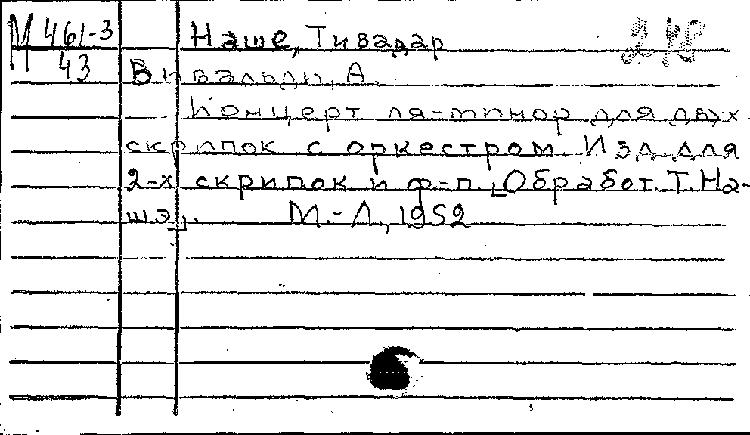 М 461-3 Наше, Тивадар
43 Вивальди, А.
Концерт ля-минор для двух
скрипок с оркестром. Изд. для
2-х скрипок и ф-п. [Обработ. Т. На-
шэ].  М.-Л., 1952